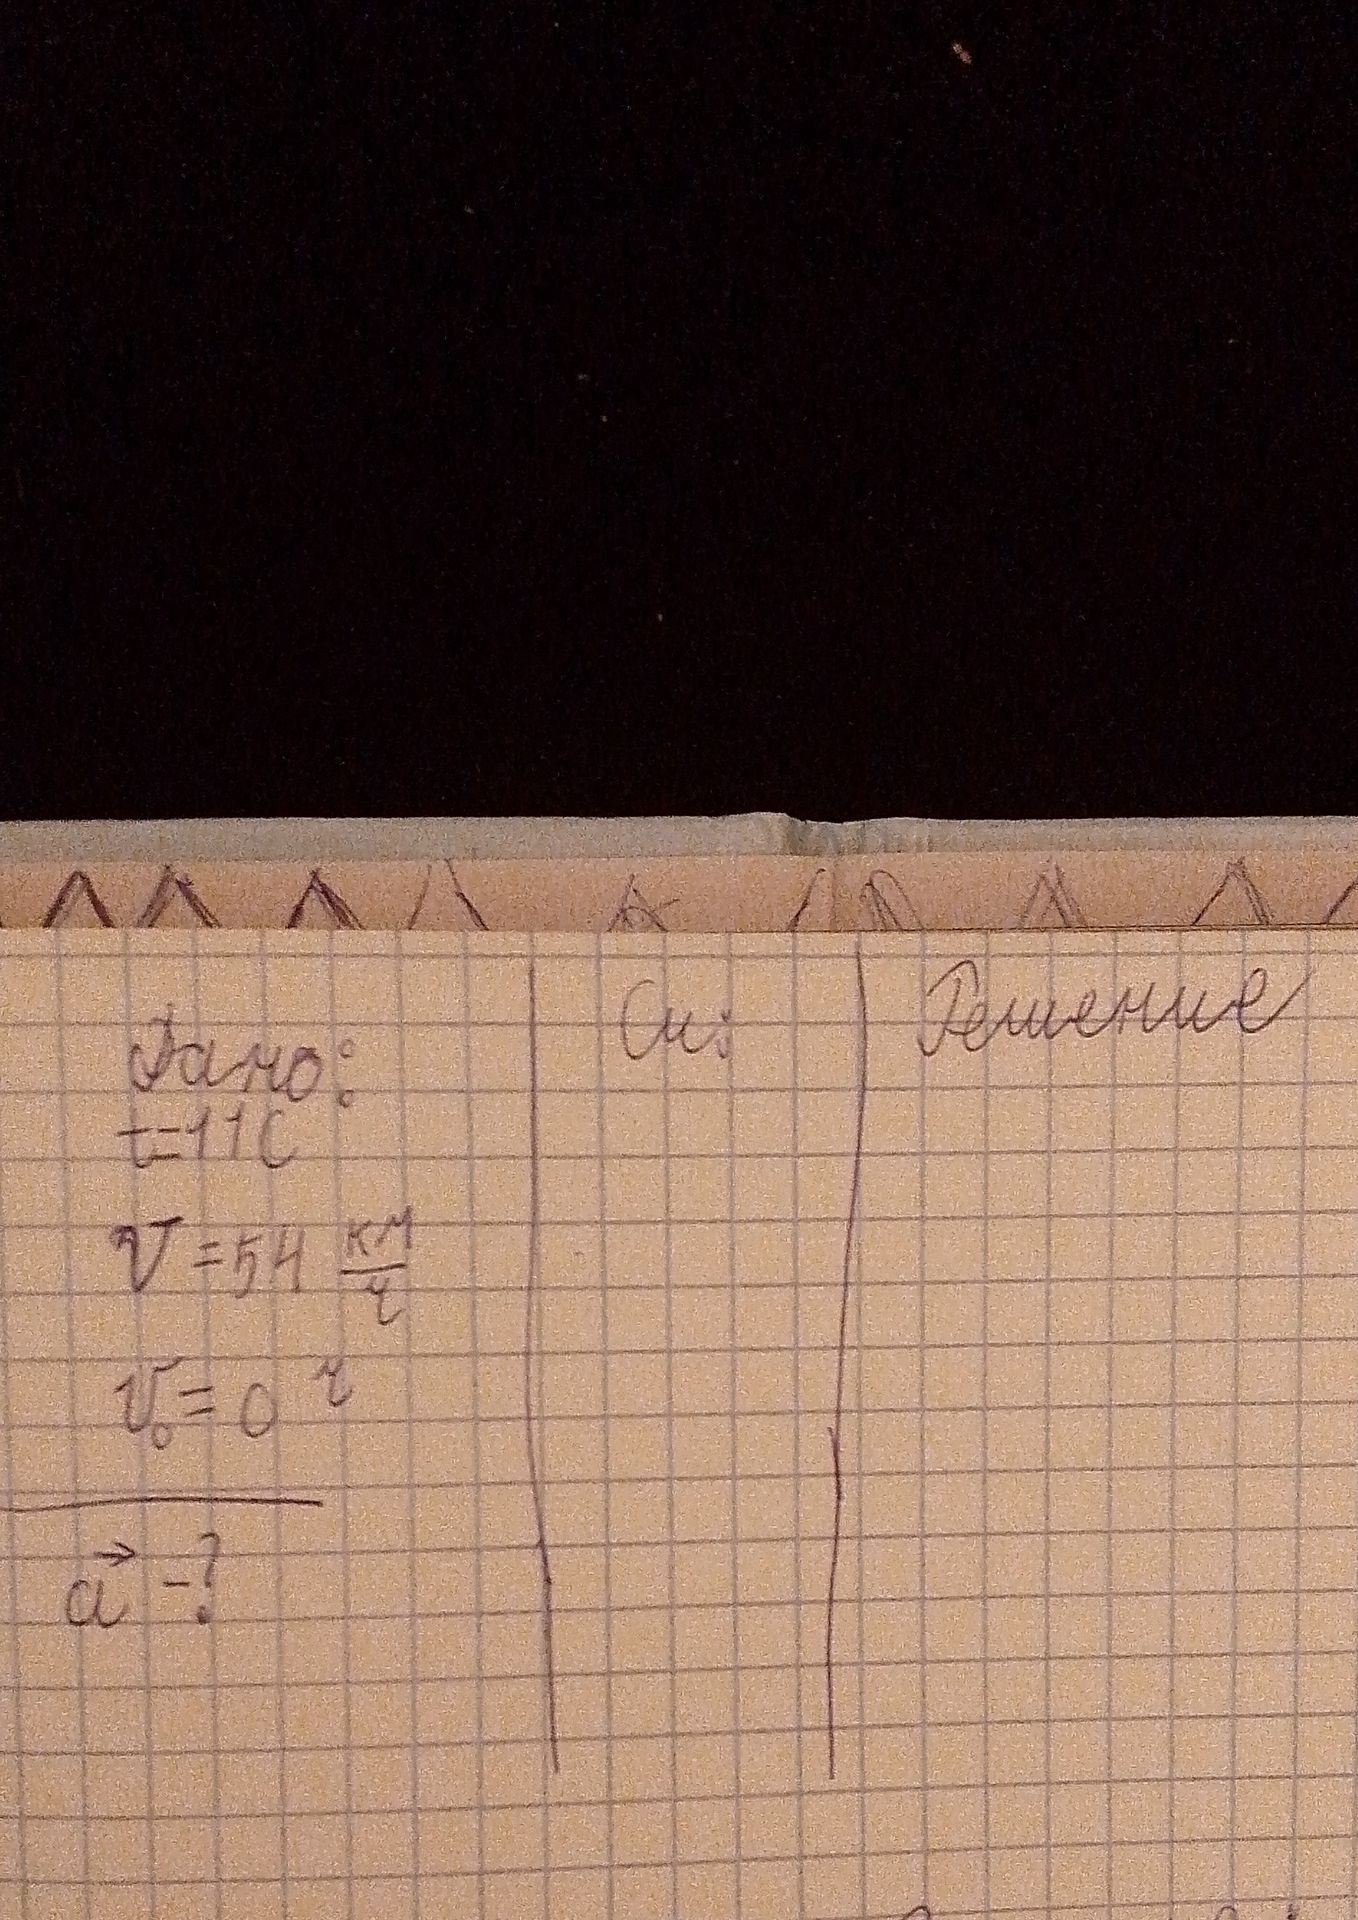 Дано:
t=11с
v=54 км/ч
v₀=0 ч
a⃗ -?
Си:
Решение